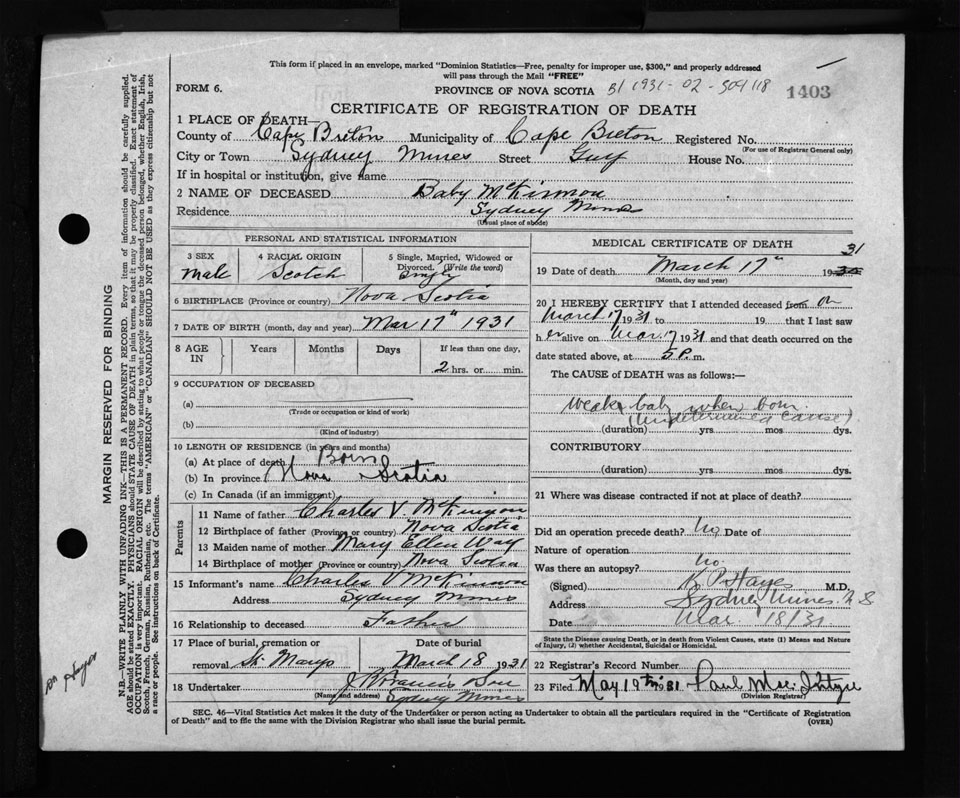 This form if placed in an envelope, marked "Dominion Statistics—Free, penalty for improper use, $300," and properly addressed
will pass through the Mail "FREE"
FORM 6.
PROVINCE OF NOVA SCOTIA B1 1931-02-509118
1403
CERTIFICATE OF REGISTRATION OF DEATH
1 PLACE OF DEATH—
County of Cape Breton Municipality of Cape Breton Registered No.
(For use of Registrar General only)
City or Town Sydney Mines Street House No.
If in hospital or institution, give name
2 NAME OF DECEASED Baby McKinnon
Residence Sydney Mines
(Usual place of abode)
PERSONAL AND STATISTICAL INFORMATION
3 SEX
male
4 RACIAL ORIGIN
Scotch
5 Single, Married, Widowed or
Divorced. (Write the word)
Single
6 BIRTHPLACE (Province or country) Nova Scotia
7 DATE OF BIRTH (month, day and year) Mar 17th 1931
8 AGE IN
Years Months Days If less than one day,
2 hrs. or min.
9 OCCUPATION OF DECEASED
(a)
(Trade or occupation or kind of work)
(b)
(Kind of industry)
10 LENGTH OF RESIDENCE (in years and months)
(a) At place of death Born
(b) In province Nova Scotia
(c) In Canada (if an immigrant)
Parents
11 Name of father Charles V. McKinnon
12 Birthplace of father (Province or country) Nova Scotia
13 Maiden name of mother Mary Ellen Way
14 Birthplace of mother (Province or country) Nova Scotia
15 Informant's name Charles V McKinnon
Address Sydney Mines
16 Relationship to deceased Father
17 Place of burial, cremation or Date of burial
removal St. Marys March 18 1931
18 Undertaker J Francis
(Name and address) Sydney Mines
MEDICAL CERTIFICATE OF DEATH
19 Date of death March 17th 1930 31
(Month, day and year)
20 I HEREBY CERTIFY that I attended deceased from on
March 17 1931 to 19 that I last saw
h er alive on Mar. 17 1931 and that death occurred on the
date stated above, at 5 P. m.
The CAUSE OF DEATH was as follows:—
Weak baby when born.
(Undetermined Cause)
(duration) yrs mos dys.
CONTRIBUTORY
(duration) yrs mos dys.
21 Where was disease contracted if not at place of death?
Did an operation precede death? No Date of
Nature of operation
Was there an autopsy? No.
(Signed) Hayes M.D.
Address Sydney Mines N S
Date Mar 18/31
State the Disease causing Death, or in death from Violent Causes, state (1) Means and Nature
of Injury, (2) whether Accidental, Suicidal or Homicidal.
22 Registrar's Record Number
23 Filed May 19th 1931 Paul
(Division Registrar)
SEC. 46—Vital Statistics Act makes it the duty of the Undertaker or person acting as Undertaker to obtain all the particulars required in the "Certificate of Registration
of Death" and to file the same with the Division Registrar who shall issue the burial permit.
(OVER)
MARGIN RESERVED FOR BINDING
N.B.—WRITE PLAINLY WITH UNFADING INK—THIS IS A PERMANENT RECORD. Every item of information should be carefully supplied.
AGE should be stated EXACTLY. PHYSICIANS should STATE CAUSE OF DEATH in plain terms, so that it may be properly classified. Exact statement of
OCCUPATION is very important. RACIAL ORIGIN will be described by stating to what people or tongue the deceased person belonged, whether English, Irish,
Scotch, French, German, Russian, Ruthenian, etc. The terms "AMERICAN" or "CANADIAN" SHOULD NOT BE USED as they express citizenship but not
a race or people. See instructions on back of Certificate.
Hayes